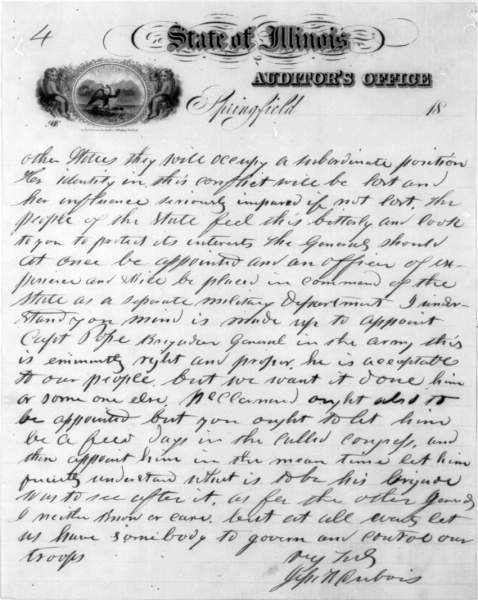 4
State of Illinois
AUDITOR'S OFFICE
Springfield 18
other States they will occupy a subordinate position
Her identity in this conflict will be lost and
her influence seriously impared if not lost, the
people of the State feel this bitterly and look
to you to protect its interests the Generals should
at once be appointed and an officer of ex-
perience and skill be placed in command of the
State as a seperate military department I under-
stand your mind is made up to appoint
Capt Pope Brigadier General in the army this
is eminently right and proper, he is acceptable
to our people, but we want it done him
or some one else, McClernand ought also to
be appointed but you ought to let him
be a few days in the called congress, and
then appoint him in the mean time let him
quietly understand what is to be his brigade
was to see after it, as for the other Generals
I neither know or care, but at all events let
us have somebody to govern and control our
troops
very truly
Jesse K Dubois